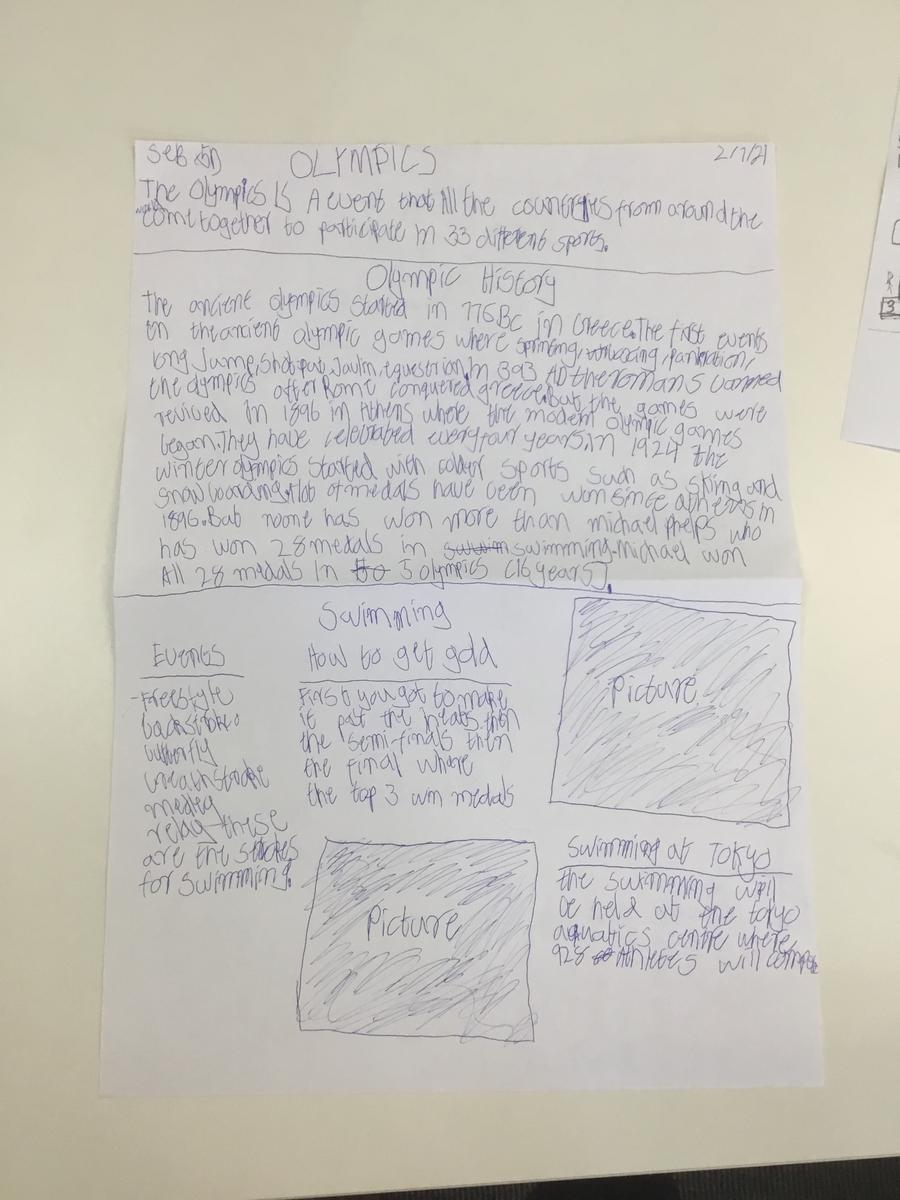 SeB 5D
OLYMPICS
2/7/21
The Olympics IS A event that All the countries from around the
world
come together to participate in 33 different sports.
Olympic History
the ancient olympics started in 776BC in Greece.The first events
in the ancient olympic games where
long Jump, Shot put, Javlin, equestrian. In 393 AD the romans banned
the olympics after Rome conquered greece. but the games were
revived in 1896 in Athens where the modern olympic games
began. They have celebrated every four years. in 1924 the
winter olympics started with colder sports such as skiing and
snowboarding. A lot of medals have been won since athens in
1896. But noone has won more than michael phelps who
has won 28 medals in swimming. michael won
All 28 medals in 5 olympics (16 years).
Swimming
Events
- Freestyle
backstroke
butterfly
breaststroke
medley
relay these
are the strokes
for swimming.
How to get gold
First you got to make
it past the heats then
the semi-finals then
the final where
the top 3 win medals
Picture
Picture
Swimming at TOKYO
the swimming will
be held at the tokyo
aquatics centre where
928 Athletes will compete